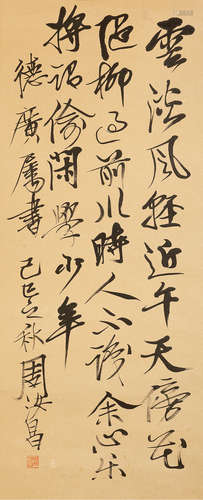 雲淡風輕近午天傍花
隨柳過前川時人不識余心樂
將謂偷閑學少年
德廣屬書 己巳之秋 周汝昌